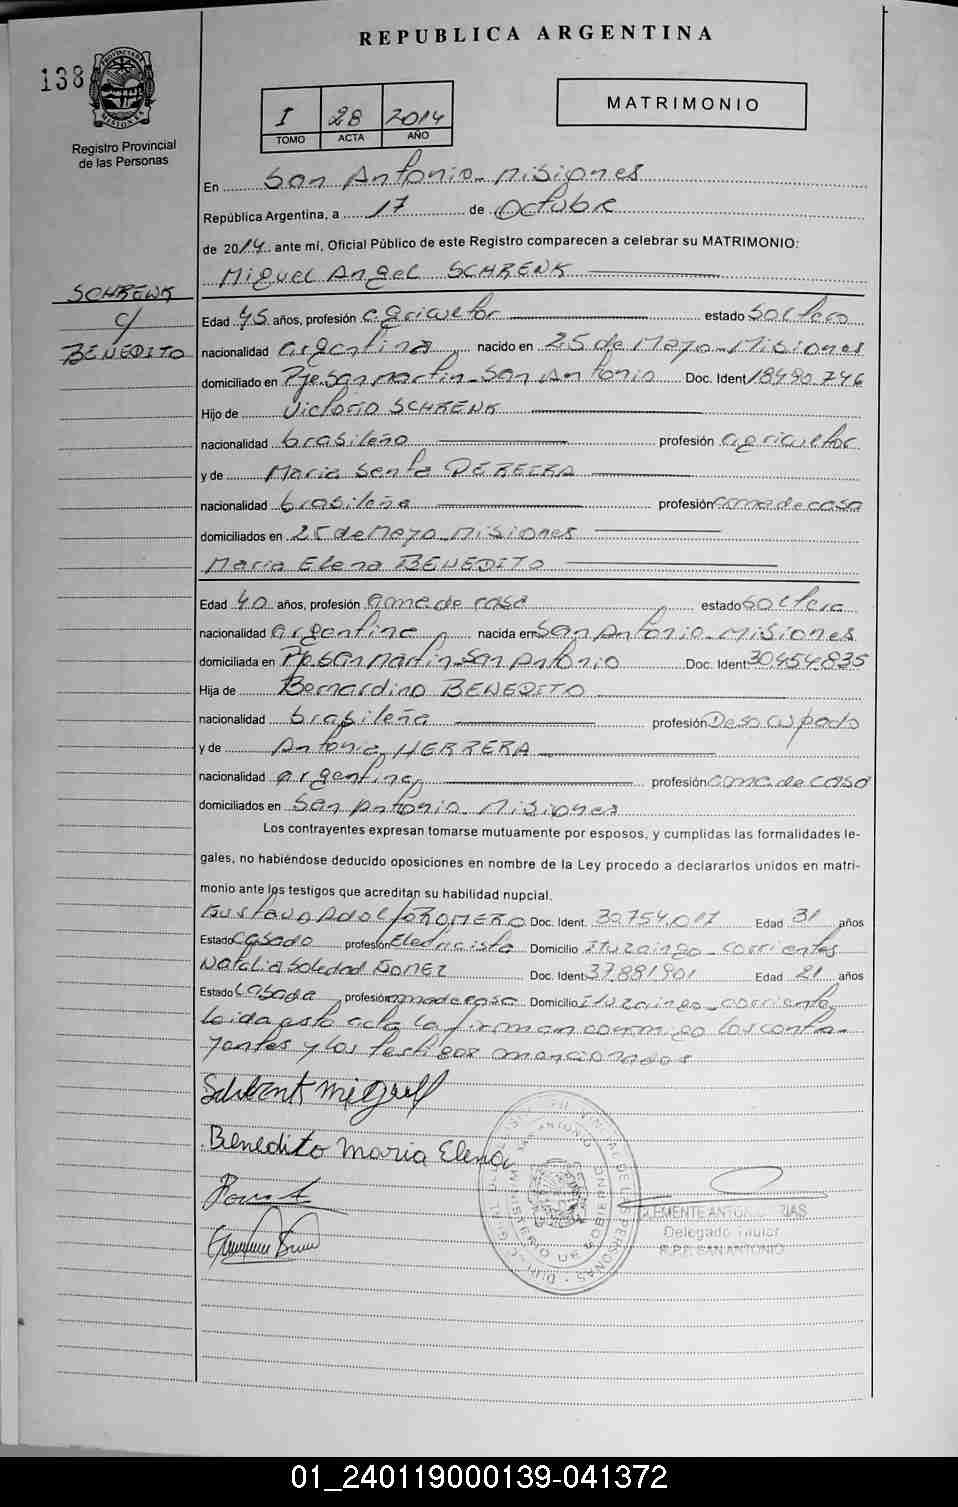 REPUBLICA ARGENTINA
138
PROVINCIA DE MISIONES
Registro Provincial
de las Personas
I 28 2014
TOMO ACTA AÑO
MATRIMONIO
En San Antonio - Misiones
República Argentina, a 17 de Octubre
de 2014 ante mí, Oficial Público de este Registro comparecen a celebrar su MATRIMONIO:
Miguel Angel SCHRENK
SCHRENK
c/
BENEDITO
Edad 45 años, profesión agricultor estado Soltero
nacionalidad argentina nacido en 25 de Mayo - Misiones
domiciliado en Pje. San martin - San Antonio Doc. Ident 18.490.746
Hijo de Victorio SCHRENK
nacionalidad brasileño profesión agricultor
y de Maria Senta PEREIRA
nacionalidad brasileña profesión ama de casa
domiciliados en 25 de Mayo - Misiones
Maria Elena BENEDITO
Edad 40 años, profesión ama de casa estado Soltera
nacionalidad argentina nacida en San Antonio - Misiones
domiciliada en Pje. San Martin - San Antonio Doc. Ident 30.454.835
Hija de Bernardino BENEDITO
nacionalidad brasileña profesión Desocupado
y de Antonia HERRERA
nacionalidad argentina profesión ama de casa
domiciliados en San Antonio Misiones
Los contrayentes expresan tomarse mutuamente por esposos, y cumplidas las formalidades le-
gales, no habiéndose deducido oposiciones en nombre de la Ley procedo a declararlos unidos en matri-
monio ante los testigos que acreditan su habilidad nupcial.
Gustavo Adolfo ROMERO Doc. Ident. 30.754.017 Edad 31 años
Estado Casado profesión Electricista Domicilio Ituzaingo - corrientes
Natalia Soledad GOMEZ Doc. Ident 37.881.901 Edad 21 años
Estado Casada profesión ama de casa Domicilio Ituzaingo - corrientes
Leida esta acta la firman conmigo los contra-
yentes y los testigos mencionados
Schrenk Miguel
Benedito Maria Elena
CLEMENTE ANTONIO
Delegado Titular
R.P.P. SAN ANTONIO
01_240119000139-041372